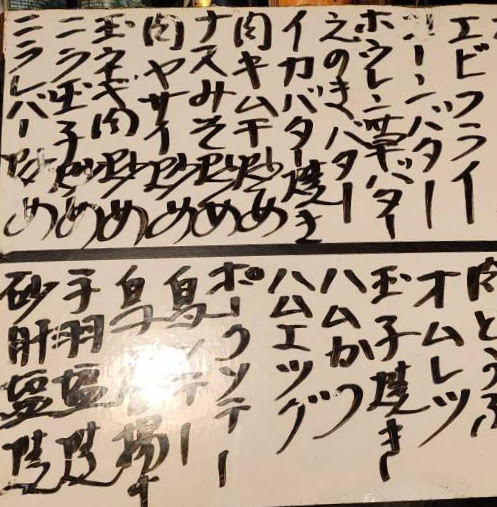 エビフライ
コーンバター
ホウレン草バター
えのきバター
イカバター焼き
肉キムチ炒め
ナスみそ炒め
肉ヤサイ炒め
玉ネギ肉炒め
ニラ玉子炒め
ニラレバー炒め
肉とうふ
オムレツ
玉子焼き
ハムカツ
ハムエッグ
ポークソテー
鳥ソテー
鳥唐揚
手羽塩焼
砂肝塩焼